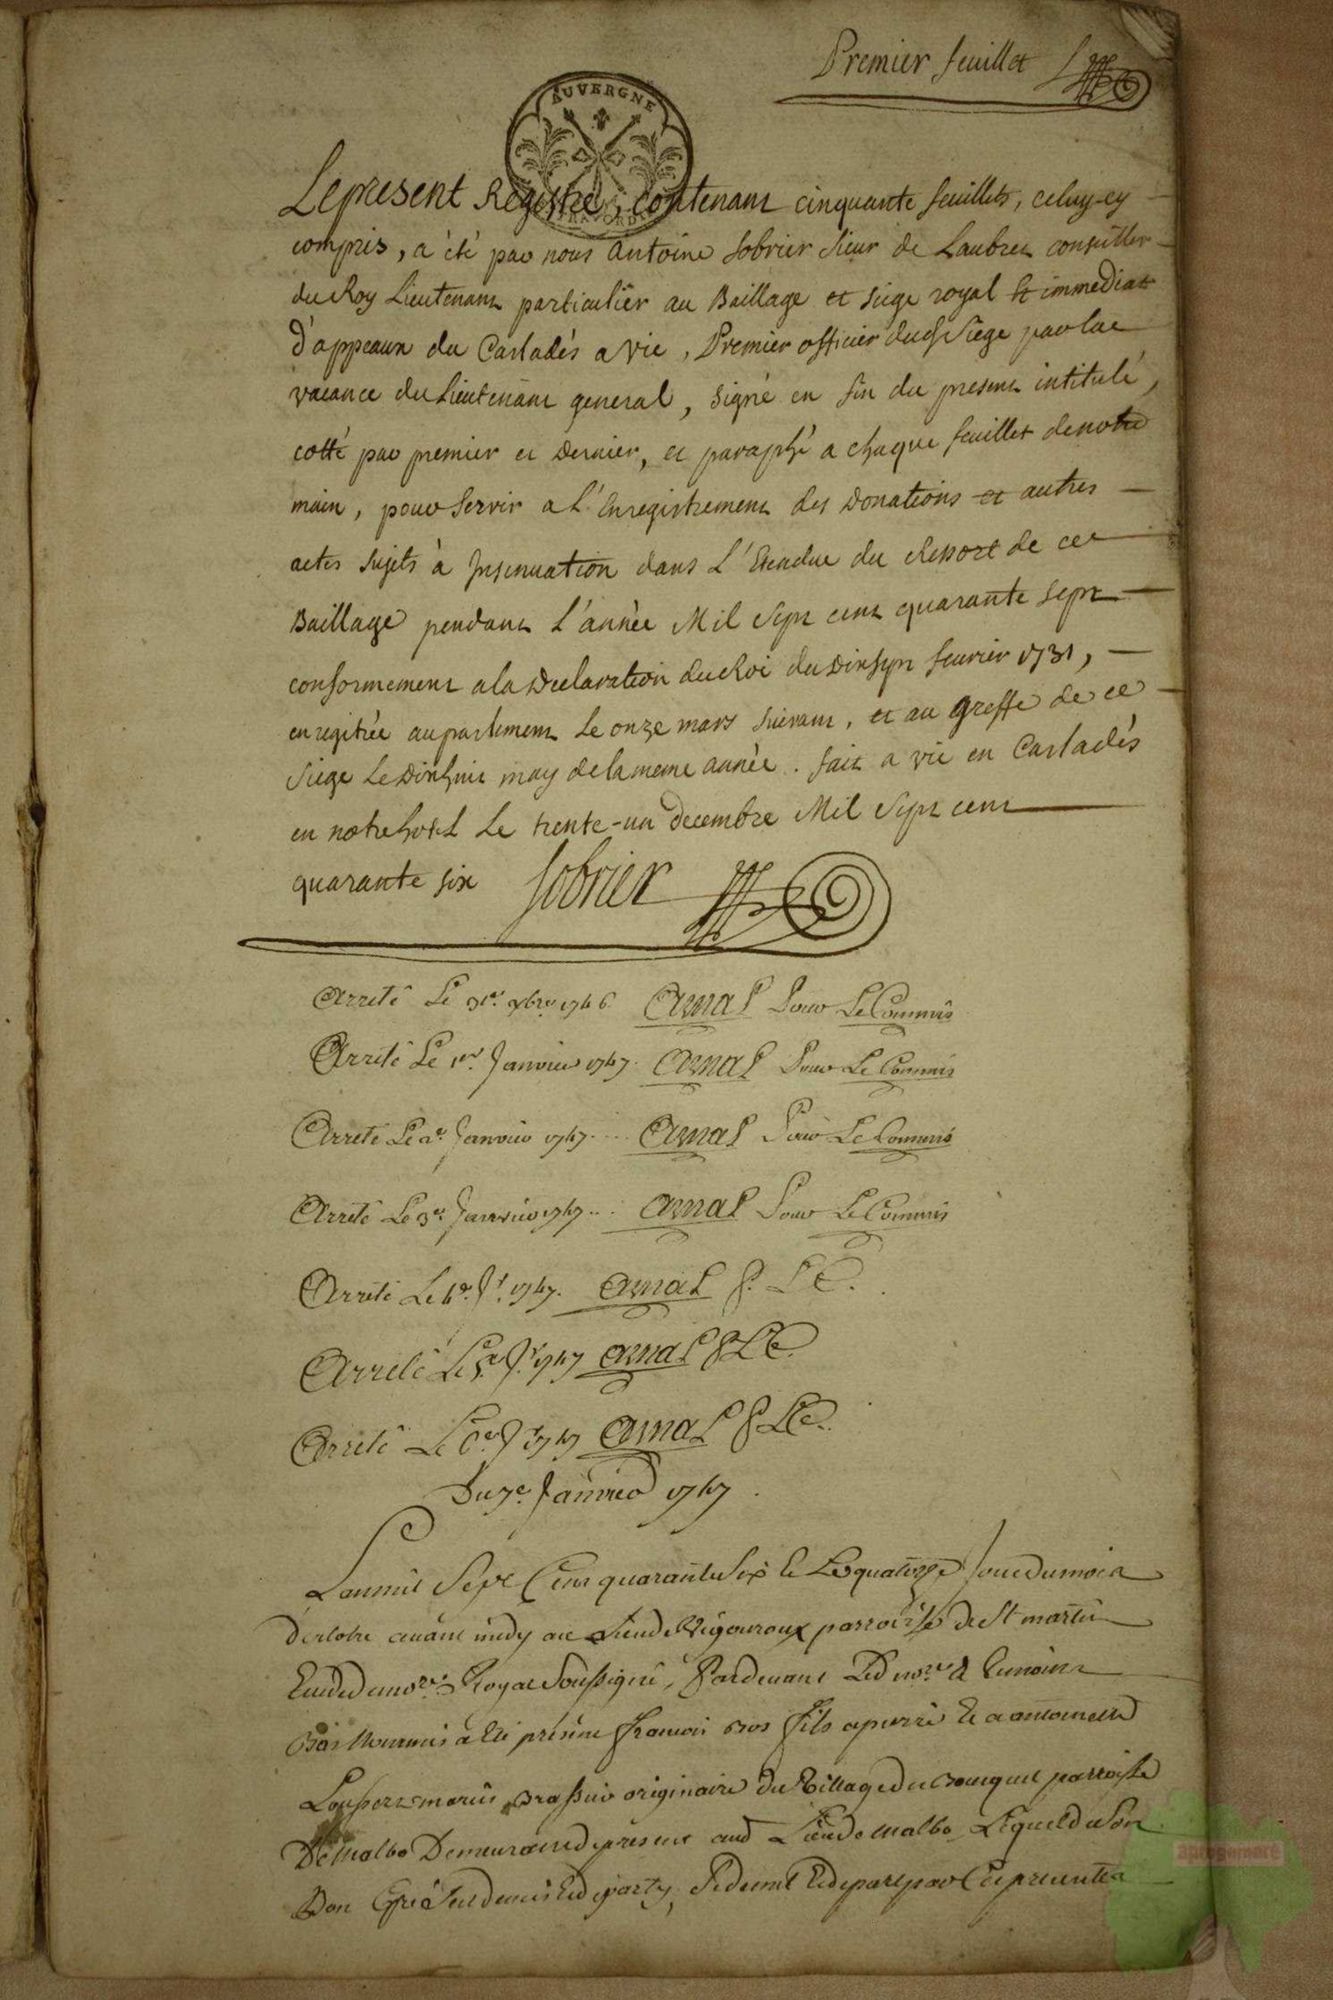 Premier feuillet
AUVERGNE
Le present Registre, contenant cinquante feuillets, celuy-cy
compris, a été par nous Antoine Sobrier Sieur de Laubret conseiller
du Roy Lieutenant particulier au Baillage et siege royal et immediat
d'appeaux du Carladés a vic, Premier officier dud Siege par la
vacance du Lieutenant general, signé en fin du present intitulé,
cotté par premier et dernier, et paraphé a chaque feuillet de notre
main, pour servir a L'Enregistrement des Donations et autres
actes sujets à Insinuation dans L'Etendue du Ressort de ce
Baillage pendant L'année Mil Sept cent quarante sept
conformement a la Declaration du Roi du Dixsept fevrier 1731,
enregitrée au parlement Le onze mars suivant, et au greffe de ce
Siege Le Dixhuit may de la meme année. fait a vic en Carladés
en notre hotel Le trente-un Decembre Mil Sept cent
quarante six Sobrier
Arreté Le 31e. xbre 1746 Amal Pour Le Commis
Arreté Le 1er. Janvier 1747. Amal Pour Le Commis
Arreté Le 2e. Janvier 1747.... Amal Pour Le Commis
Arreté Le 3e. Janvier 1747... Amal Pour Le Commis
Arreté Le 4e. Jr. 1747. Amal P. L C.
Arreté Le 5e. Jr. 1747 Amal P L C.
Arreté Le 6e. Jr 1747 Amal P L C.
Du 7e. Janvier 1747.
Lan mil Sept Cent quarante Six & Le quatorze Jour du mois
D'octobre avant midy au Lieu de Vigouroux parroisse de St martin
Etude de nore. Royal Soussigné, Pardevant Led nore & temoins
Bas Nommés a été présent francois Bos fils a pierre & a antoinette
originaire du Village du Bousquet parroisse
De Malbo Demeurant de présent aud Lieu de Malbo, Lequel de Son
Bon Gré